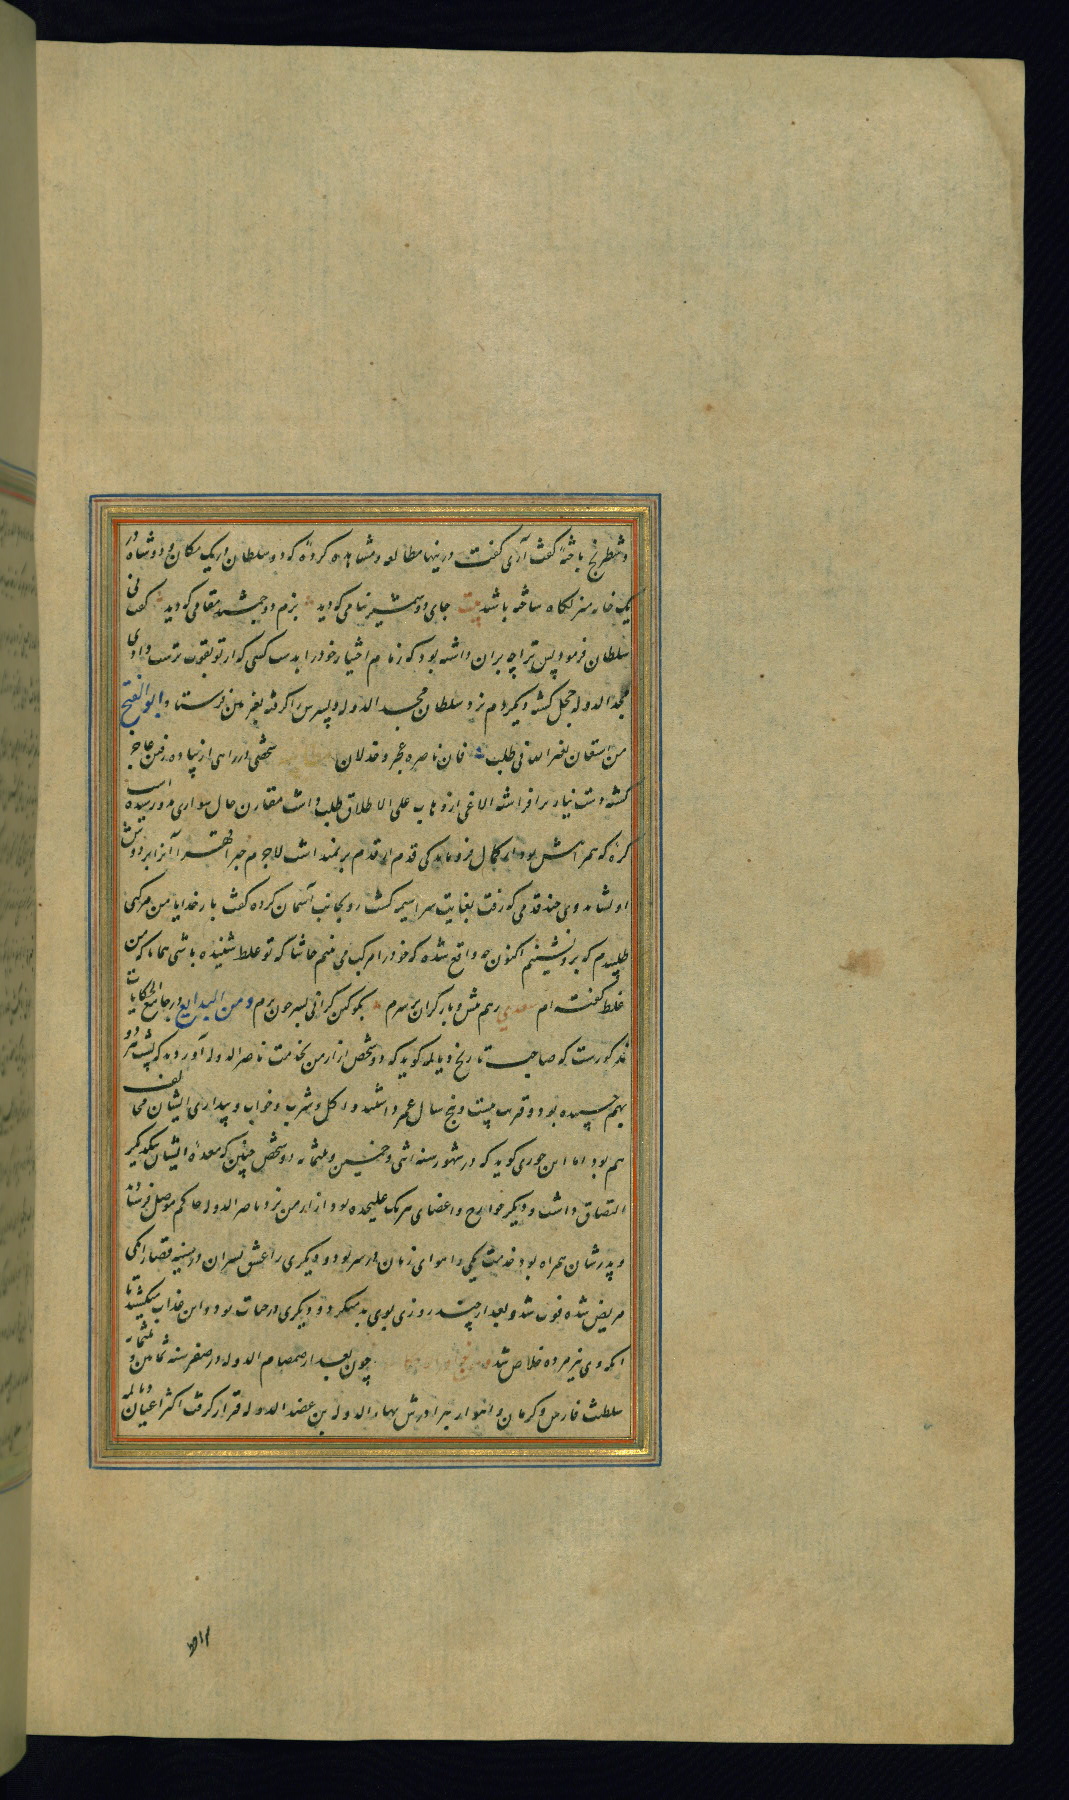 و شطرنج باخته گفت آری گفت درینها مطالعه و مشاهده کرده که دو سلطان در یک مکان و دو شاه در
یک خانه منزلگاه ساخته باشد بیت جای دو شمشیر نیامی که دید بزم دو جمشید مقامی که دید گفت نی
سلطان فرمود پس ترا چه بران داشته بود که زمام اختیار خود را بدست کسی که از تو بقوت ترست دادی
مجدالدوله خجل گشته دیگر دم نزد سلطان مجدالدوله و پسرش را گرفته بغزنین فرستاد ابوالفتح
من استعان بغیر الله فی طلب فان ناصره عجز و خذلان شخصی در راهی از پیاده رفتن عاجز
گشته دست نیاز برافراشته الاغی از وهاب علی الاطلاق طلب داشت مقارن حال سواری بدو رسیده اسب
کره که همراهش بود از کمال فروماندگی قدم از قدم برنمیداشت لاجرم جبرا قهرا آنرا بر دوش
او نشانده وی چند قدمی که رفت بغایت سراسیمه گشت رو بجانب آسمان کرده گفت بار خدایا من مرکبی
طلبیدم که برو نشینم اکنون چه واقع شده که خود را مرکب می بینم حاشا که تو غلط شنیده باشی همانا که من
غلط گفته ام سعدی رهم پیش و بار گران بر سرم بگو کین گرانی بسر چون برم و من البدایع در جامع الحکایات
مذکورست که صاحب تاریخ دیالمه گوید که دو شخص از ارمن بخدمت ناصرالدوله آوردند که پشت هر دو
بهم چسپیده بود و قریب بیست و پنج سال عمر داشتند و اکل و شرب و خواب و بیداری ایشان مخالف
هم بود اما ابن جوزی گوید که در شهور سنه اثنی و خمسین و ثلثمائه دو شخص چنین که معده ایشان بیکدیگر
التصاق داشت و دیگر جوارح و اعضای هر یک علیحده بود از ارمن نزد ناصرالدوله حاکم موصل فرستادند
و پدرشان همراه بود خدمت یکی را هوای زنان در سر بود و دیگری را عشق پسران در سینه قضا را یکی
مریض شده فوت شد و بعد از چند روزی بوی بد میکرد و دیگری در حیات بود و این عذاب میکشید تا
آنکه وی نیز مرده خلاص شد چون بعد از صمصام الدوله در صفر سنه ثمان و ثلثمائه
سلطنت فارس و کرمان و اهواز برادرش بهاء الدوله بن عضد الدوله قرار گرفت اکثر اعیان دیالمه